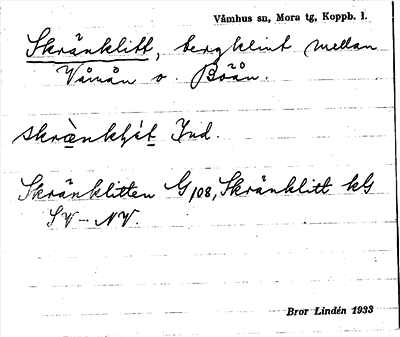 Våmhus sn, Mora tg, Koppb. l.
Skränklitt, bergklint mellan
Våmån o. Böån.
skrànkḷít Ind.
Skränklitten G 108, Skränklitt kG
SV-NV.
Bror Lindén 1933